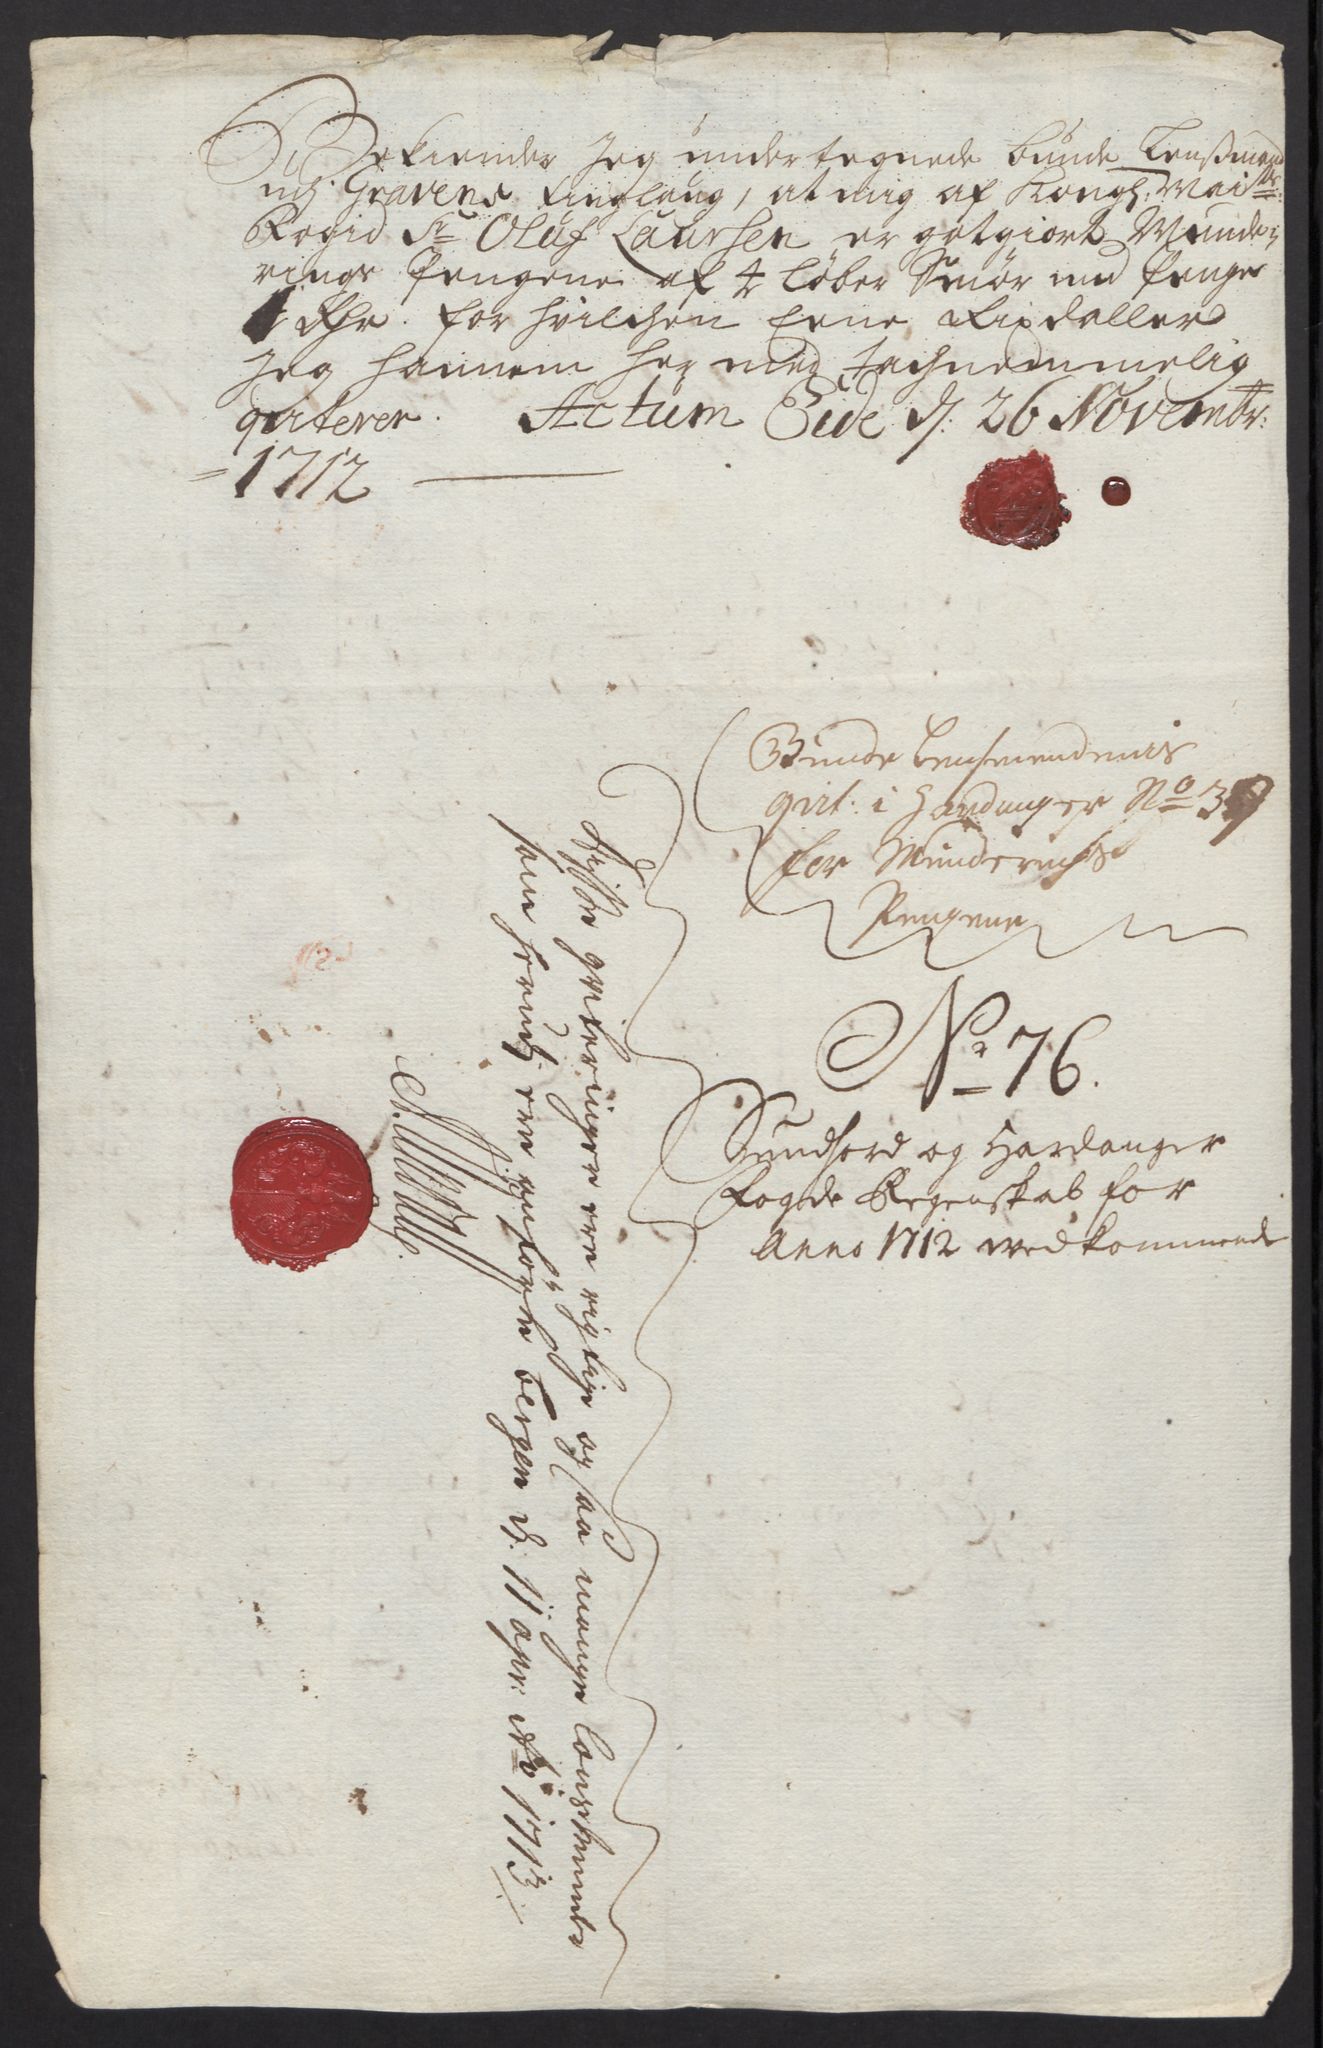 Bekiender Jeg undertegnede bunde Lensmand
udj Gravens tinglaug, at mig af Kongl: Mai:ts
Fogid Sr Oluf Laursen er gotgiort Munde-
rings Pengene af 4 løber Smør med Penge
1 Rdr. for hvilchen Eene Rixdaller
Jeg hannem her med tachnemmelig
qviterer. Actum Eide d: 26 Novembr:
1712
Bunde Lensmendenis
qvit: i Hardanger No 39
for Munderings
Pengene
No 76.
Sundhord og Hardanger
Fogde Regenskab for
Anno 1712 vedkommende
Disse qviteringer ere rigtige og saa mange
som herudj ere anført bergen d: 11 apr: Ao 1713